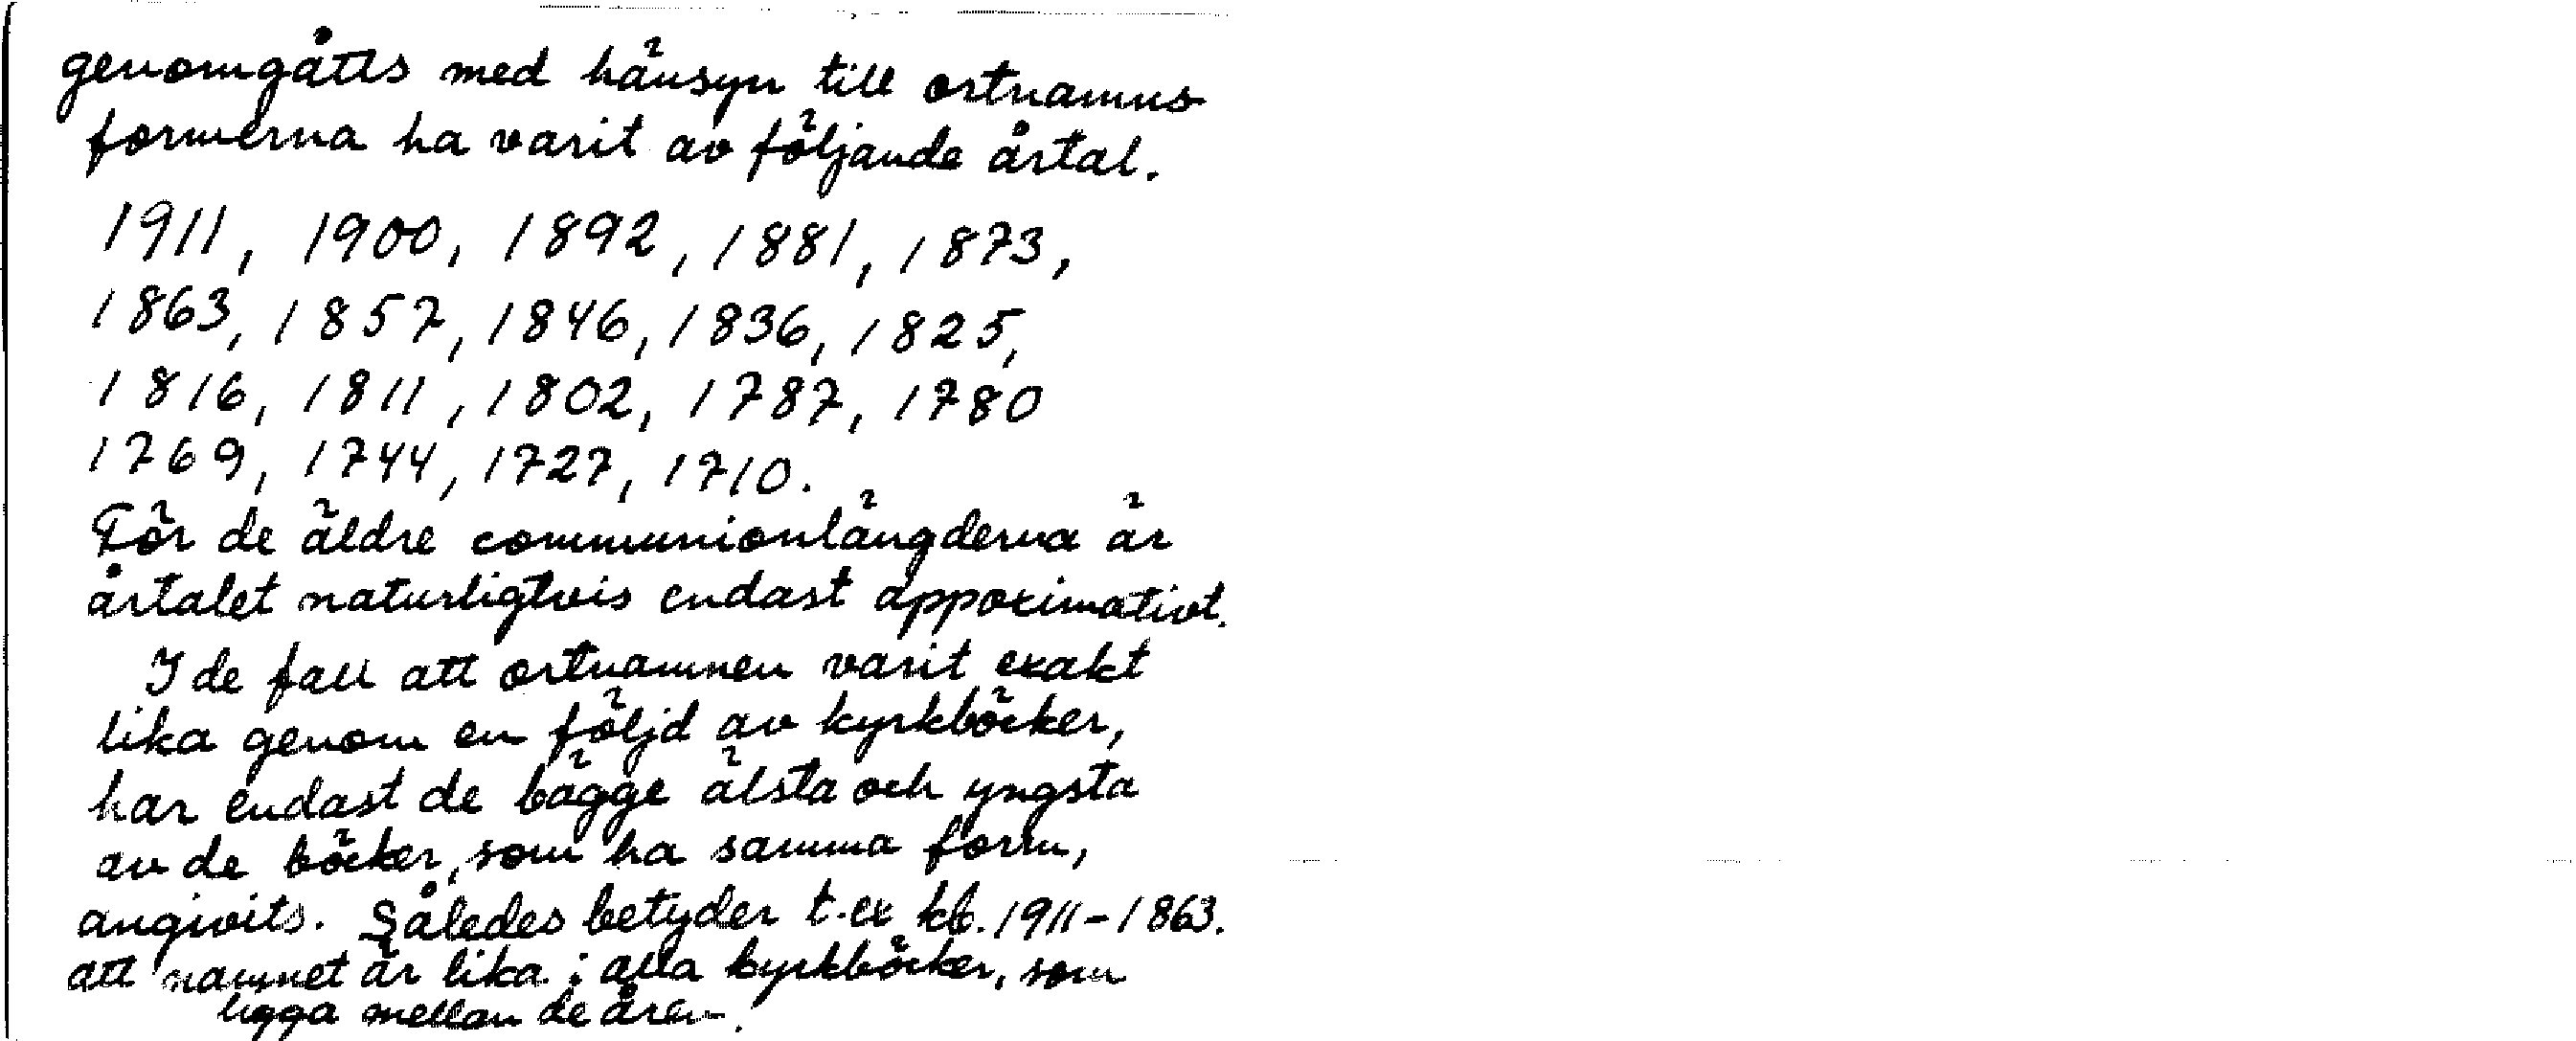 genomgåtts med hänsyn till ortnamns
formerna ha varit av följande årtal.
1911, 1900, 1892, 1881, 1873,
1863, 1857, 1846, 1836, 1825,
1816, 1811, 1802, 1787, 1780
1769, 1744, 1727, 1710.
För de äldre communionlängderna är
årtalet naturligtvis endast appoximativt.
I de fall att ortnamnen varit exakt
lika genom en följd av kyrkböcker,
har endast de bägge älsta och yngsta
av de böcker, som ha samma form,
angivits. Således betyder t.ex kb. 1911-1863.
att namnet är lika i alla kyrkböcker, som
ligga mellan de åren.